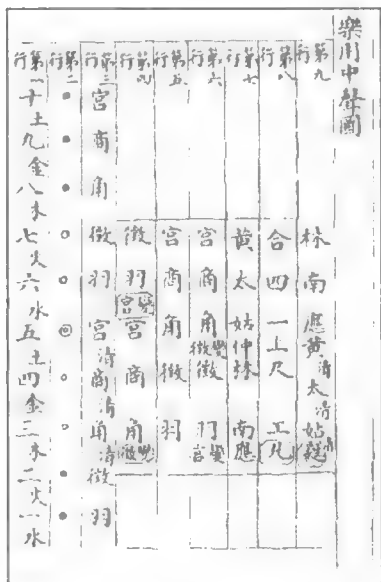 樂用中聲圖
第九行 林南應黃清太清姑清
第八行 合四一上尺工凡
第七行 黃太姑仲林南應
第六行 宮商角變徵徵羽變宮
第五行 宮商角徵羽
第四行 徵羽變宮宮商角變徵
第三行 宮商角徵羽宮清商清角清徵羽
第二行 ●●●○○◎○○●●
第一行 十土九金八木七火六水五土四金三木二火一水